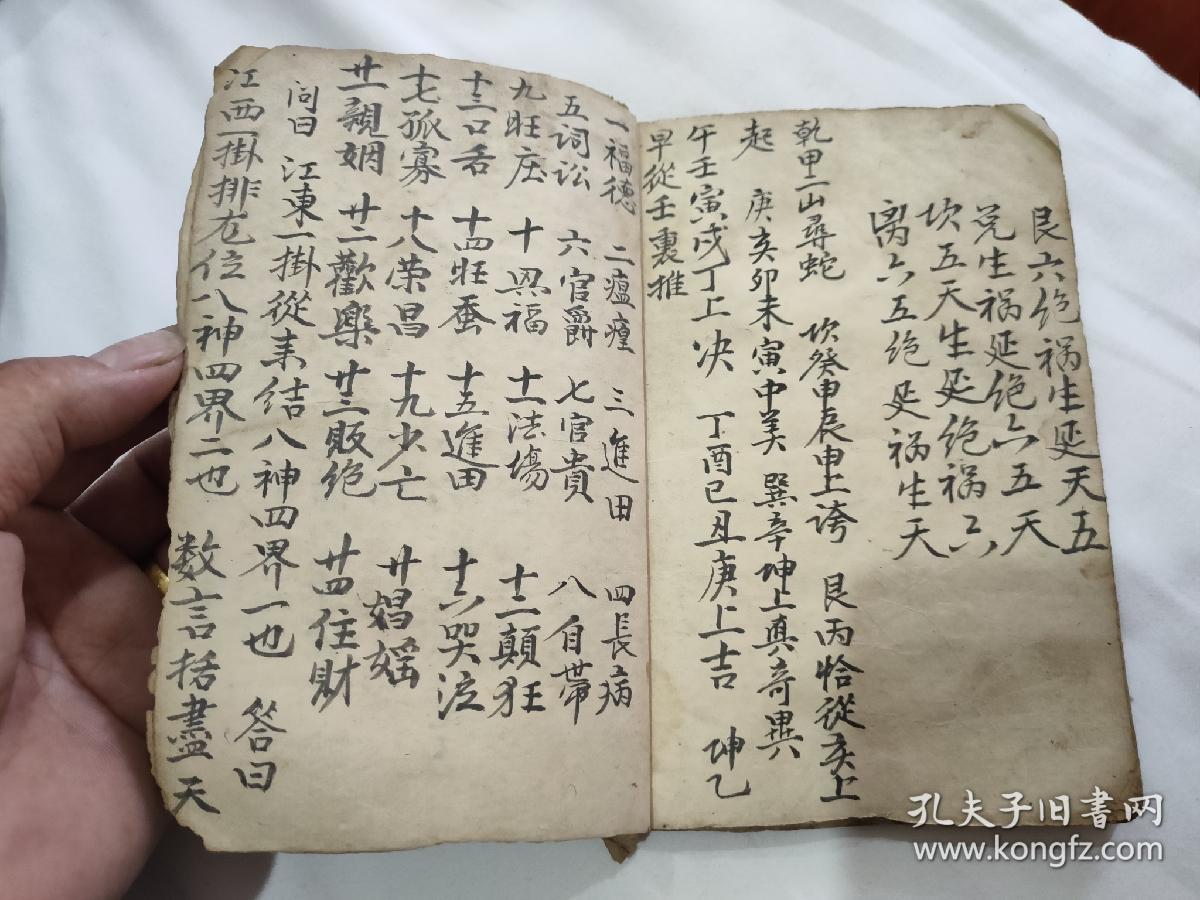 艮六绝祸生延天五
兑生祸延绝六五天
坎五天生延绝祸六
离六五绝延祸生天
乾甲二山尋蛇 坎癸申辰申上誇 艮丙恰從亥上
起 庚亥卯未寅中美 巽辛坤上真奇異
午壬寅戌丁上决 丁酉巳丑庚上吉 坤乙
早從壬裏推
一福德 二瘟㾮 三進田 四長病
五词讼 六官爵 七官貴 八自帶
九旺庄 十興福 十一法場 十二顛狂
十三口舌 十四旺蚕 十五進田 十六哭泣
十七孤寡 十八荣昌 十九少亡 廿娼婬
廿一親姻 廿二歡樂 廿三販绝 廿四住財
问曰 江東一掛從来结八神四界一也 答曰
江西一掛排尨位八神四界二也 数言括盡天
孔夫子旧書网
www.kongfz.com